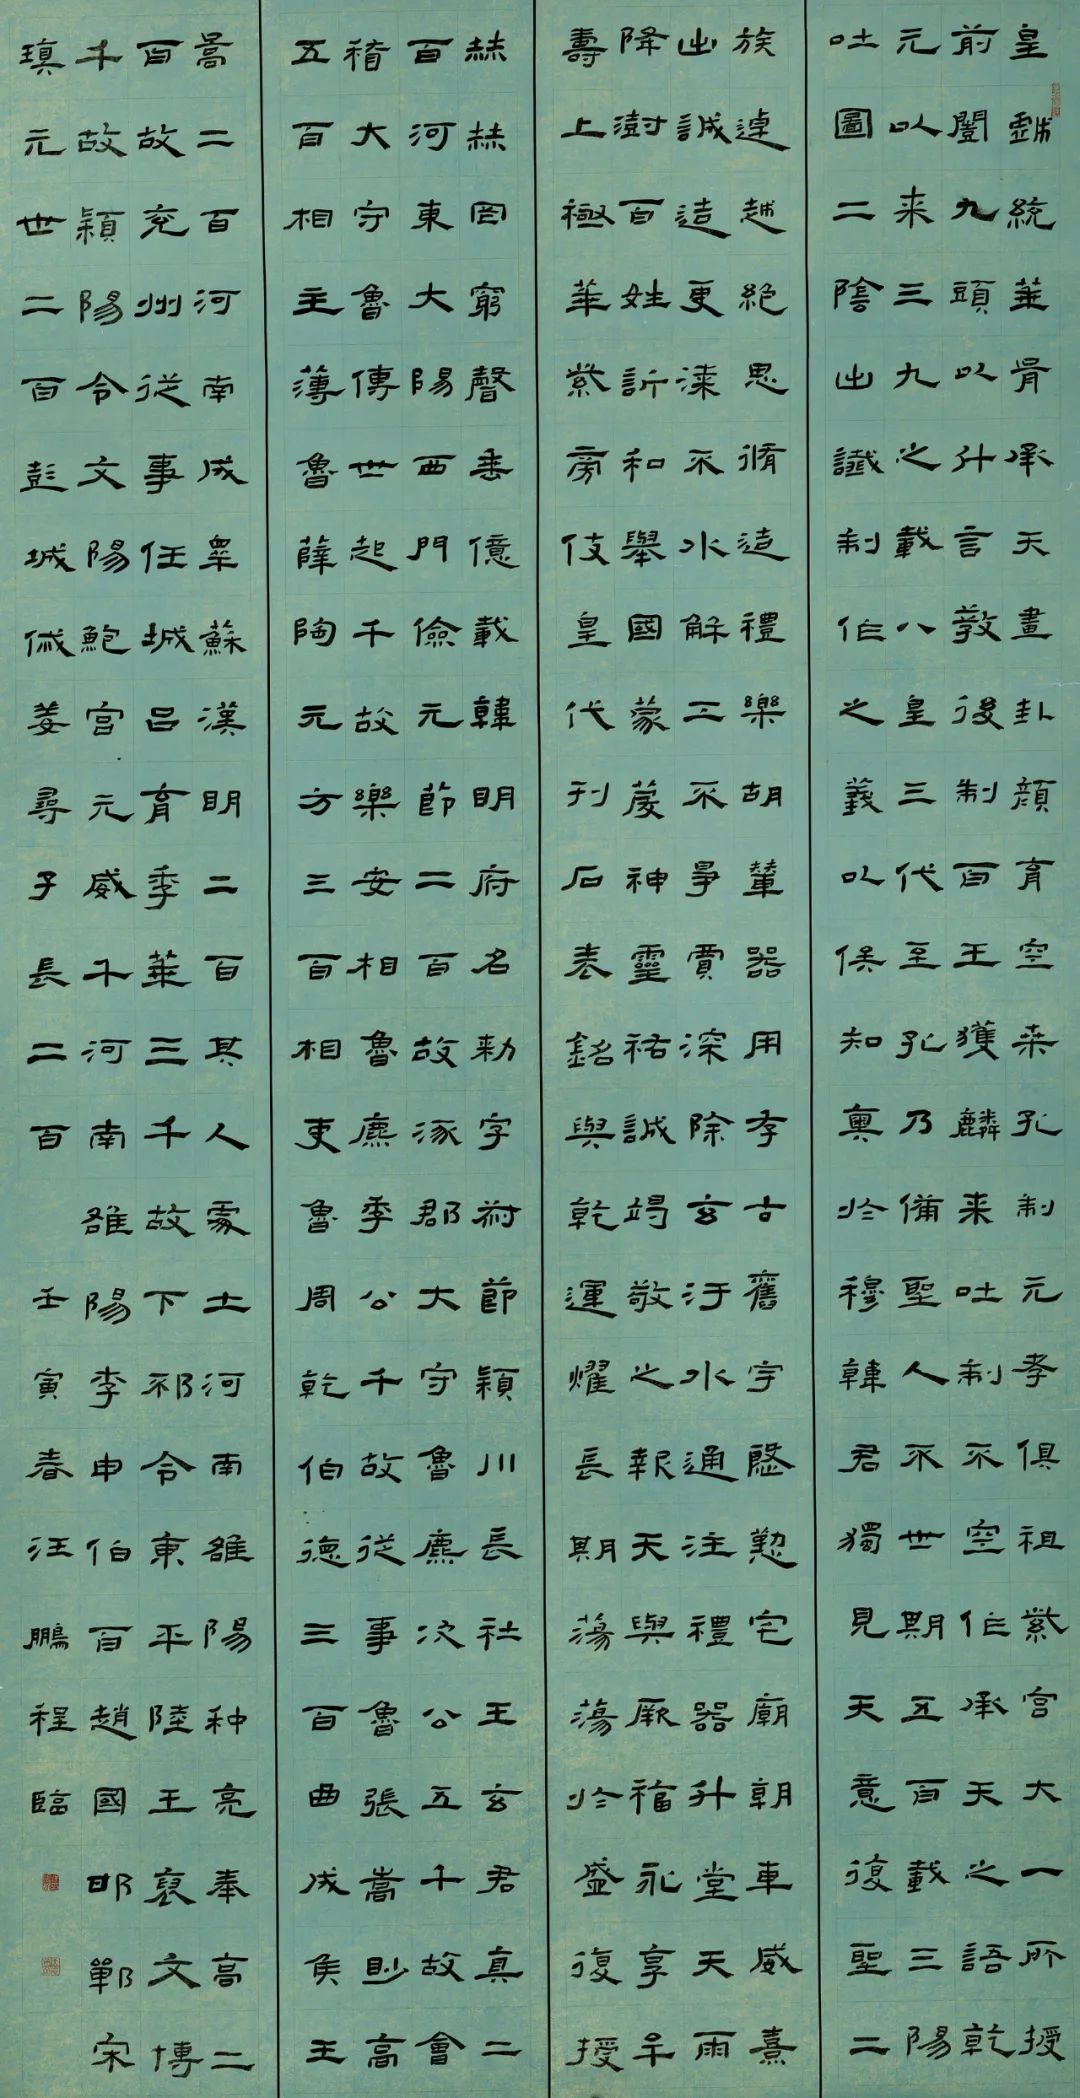 皇戲統華胥承天畫卦顏育空桑孔制元孝俱祖紫宮大一所授
前闓九頭以什言教後制百王獲麟来吐制不空作承天之語乾
元以来三九之載八皇三代至孔乃備聖人不世期五百載三陽
吐圖二陰出讖制作之義以俟知奧於穆韓君獨見天意復聖二
族逴越絕思脩造禮樂胡輦器用存古舊宇慇懃宅廟朝車威熹
出誠造更漆不水解工不爭賈深除玄汙水通注禮器升堂天雨
降澍百姓訢和舉國蒙慶神靈祐誠竭敬之報天與厥福永享牟
壽上極華紫旁伎皇代刊石表銘與乾運燿長期蕩蕩於盛復授
赫赫罔窮聲垂億載韓明府名勑字叔節潁川長社王玄君真二
百河東大陽西門儉元節二百故涿郡大守魯麃次公五千故會
稽大守魯傅世起千故樂安相魯麃季公千故從事魯張嵩眇高
五百相主薄魯薛陶元方三百相史魯周乾伯德三百曲成侯王
暠二百河南成睪蘇漢明二百其人處士河南雒陽种亮奉高二
百故兗州從事任城呂育季華三千故下邳令東平陸王褒文博
千故潁陽令文陽鮑宮元威千河南雒陽李申伯百趙國邯鄲宋
瑱元世二百彭城姜尋子長二百
壬寅春汪鵬程臨